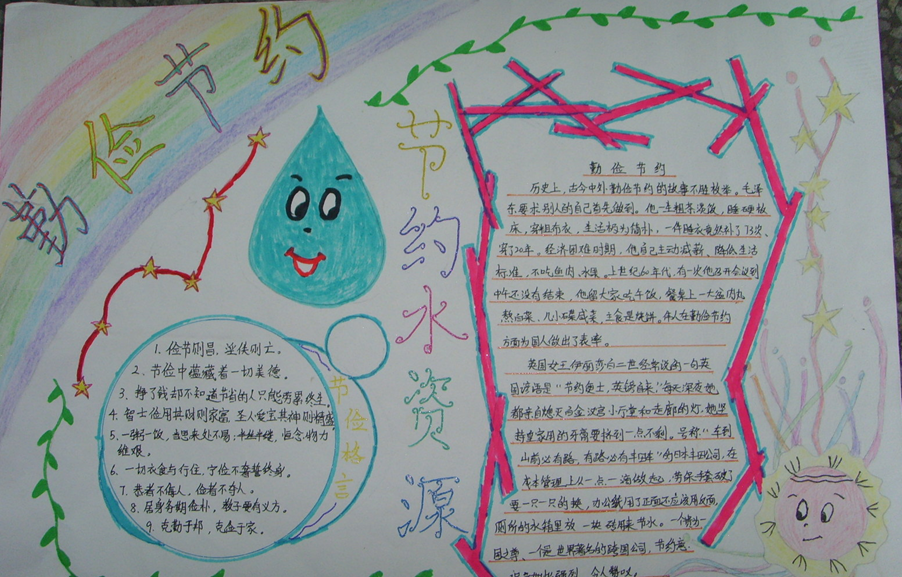 勤俭节约
节约水资源
1. 俭节则昌,淫佚则亡。
2. 节俭中蕴藏着一切美德。
3. 挣了钱却不知道节省的人只能劳累终生。
4. 智士俭用其财则家富 圣人爱宝其神则精盛
5. 一粥一饭,当思来处不易;半丝半缕,恒念物力
维艰。
6. 一切衣食与行住,宁俭不奢誓终身。
7. 恭者不侮人,俭者不夺人。
8. 居身务期俭朴,教子要有义方。
9. 克勤于邦,克俭于家。
节俭格言
勤俭节约
历史上,古今中外勤俭节约的故事不胜枚举。毛泽
东要求别人的自己首先做到。他一生粗茶淡饭,睡硬板
床,穿粗布衣,生活极为简朴,一件睡衣竟然补了73次,
穿了20年。经济困难时期,他自己主动减薪、降低生活
标准,不吃鱼肉、水果。上世纪60年代,有一次他召开会议到
中午还没有结束,他留大家吃午饭,餐桌上一大盆肉丸
熬白菜,几小碟咸菜,主食是烧饼。伟人在勤俭节约
方面为国人做出了表率。
英国女王伊丽莎白二世经常说的一句英
国谚语是"节约便士,英镑自来,"每天深夜她
都亲自熄灭白金汉宫小厅堂和走廊的灯,她坚
持皇家用的牙膏要挤到一点不剩。号称"车到
山前必有路,有路必有丰田车"的日本丰田公司,在
成本管理上从一点一滴做起,劳保手套破了
要一只一只的换,办公纸用了正面还应该用反面,
厕所的水箱里放一块砖用来节水。一个
国之尊、一个是世界著名的跨国公司,节约意